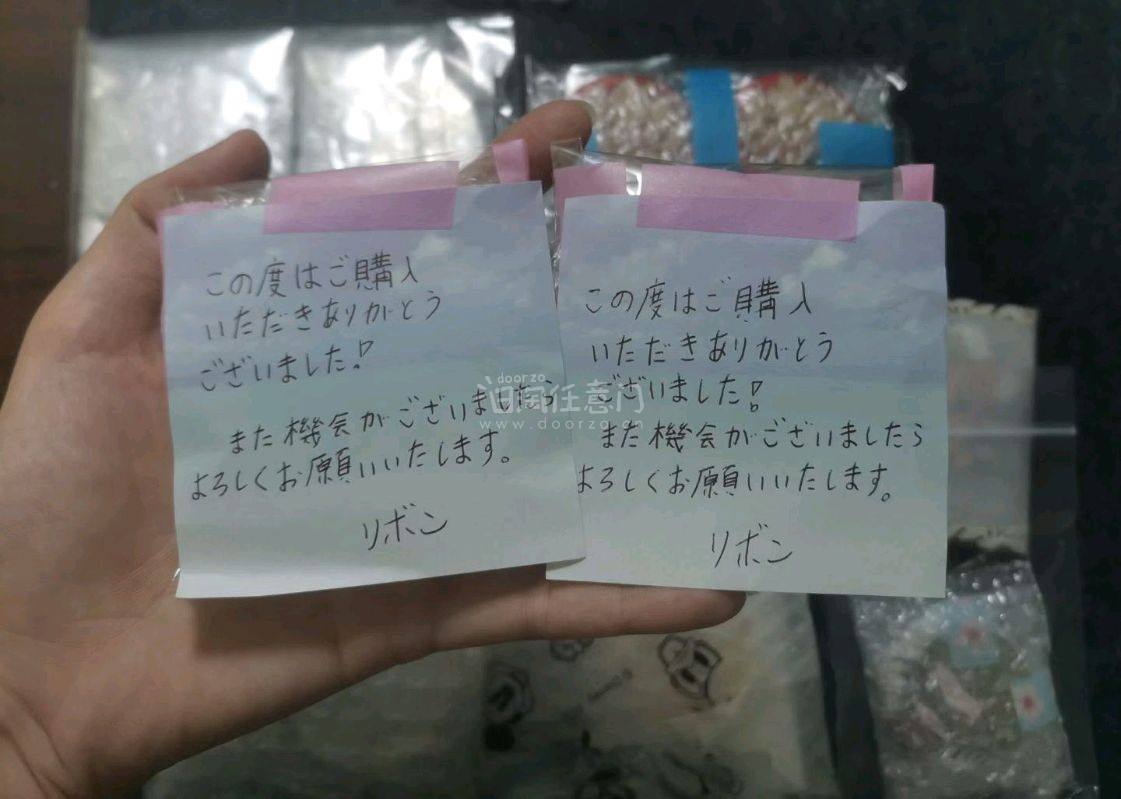 この度はご購入
いただきありがとう
ございました!
また機会がございましたら
よろしくお願いいたします。
リボン
この度はご購入
いただきありがとう
ございました!
また機会がございましたら
よろしくお願いいたします。
リボン
doorzo
任意门
www.doorzo.cn